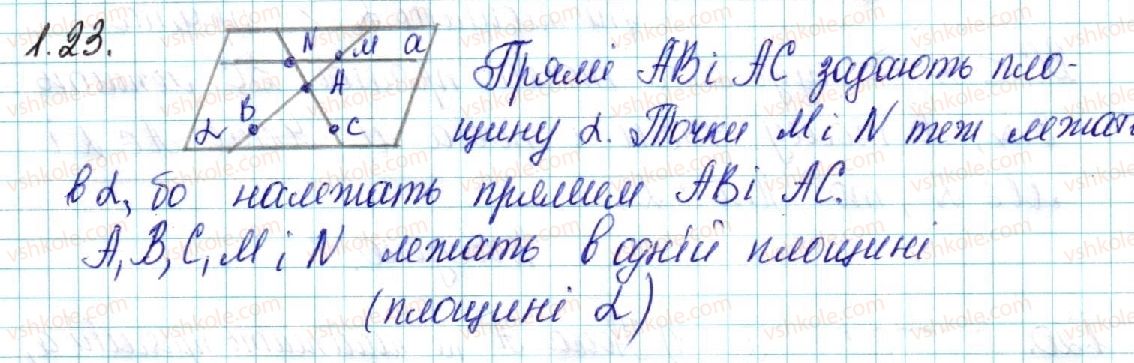 1.23.
N M a
A
B
α C
Прямі AB і AC задають пло-
щину α. Точки M і N теж лежать
в α, бо належать прямим AB і AC.
A, B, C, M і N лежать в одній площині
(площині α)